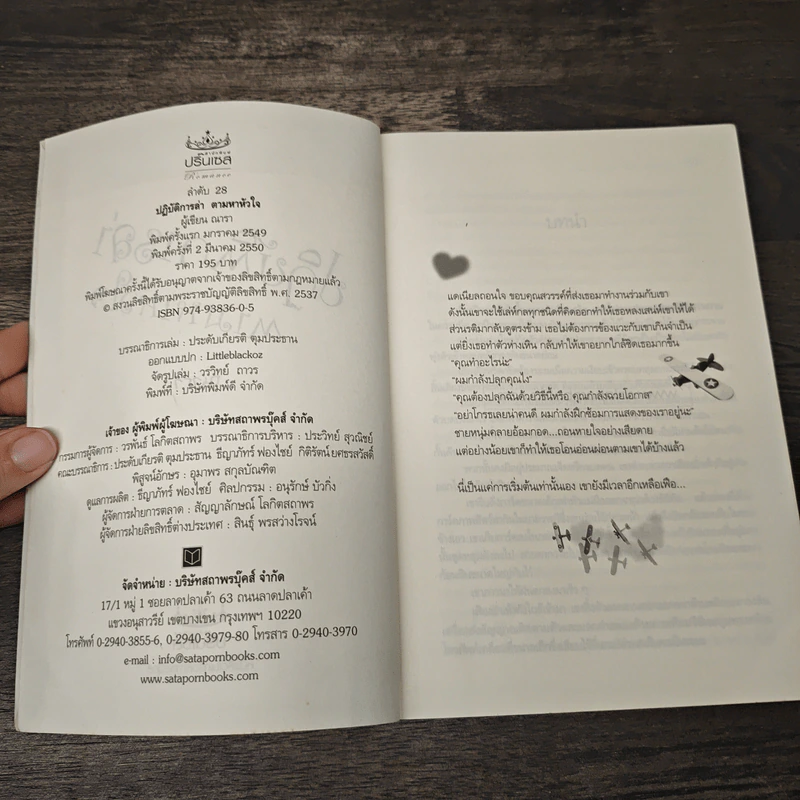 ปริ๊นเซส
Romance
ลำดับ 28
ปฏิบัติการล่า ตามหาหัวใจ
ผู้เขียน ณารา
พิมพ์ครั้งแรก มกราคม 2549
พิมพ์ครั้งที่ 2 มีนาคม 2550
ราคา 195 บาท
พิมพ์โฆษณาครั้งนี้ได้รับอนุญาตจากเจ้าของลิขสิทธิ์ตามกฎหมายแล้ว
© สงวนลิขสิทธิ์ตามพระราชบัญญัติลิขสิทธิ์ พ.ศ. 2537
ISBN 974-93836-0-5
บรรณาธิการเล่ม : ประดับเกียรติ ตุมประธาน
ออกแบบปก : Littleblackoz
จัดรูปเล่ม : วรวิทย์ ถาวร
พิมพ์ที่ : บริษัทพิมพ์ดี จำกัด
เจ้าของ ผู้พิมพ์ผู้โฆษณา : บริษัทสถาพรบุ๊คส์ จำกัด
กรรมการผู้จัดการ : วรพันธ์ โลกิตสถาพร บรรณาธิการบริหาร : ประวิทย์ สุวณิชย์
คณะบรรณาธิการ : ประดับเกียรติ ตุมประธาน ธีญาภัทร์ ฟองไชย์ กิติรัตน์ ยศธรสวัสดิ์
พิสูจน์อักษร : อุมาพร สกุลบัณฑิต
ดูแลการผลิต : ธีญาภัทร์ ฟองไชย์ ศิลปกรรม : อนุรักษ์ บัวกิ่ง
ผู้จัดการฝ่ายการตลาด : สัญญาลักษณ์ โลกิตสถาพร
ผู้จัดการฝ่ายลิขสิทธิ์ต่างประเทศ : สินธุ์ พรสว่างโรจน์
จัดจำหน่าย : บริษัทสถาพรบุ๊คส์ จำกัด
17/1 หมู่ 1 ซอยลาดปลาเค้า 63 ถนนลาดปลาเค้า
แขวงอนุสาวรีย์ เขตบางเขน กรุงเทพฯ 10220
โทรศัพท์ 0-2940-3855-6, 0-2940-3979-80 โทรสาร 0-2940-3970
e-mail : info@satapornbooks.com
www.satapornbooks.com
แดเนียลถอนใจ ขอบคุณสวรรค์ที่ส่งเธอมาทำงานร่วมกับเขา
ดังนั้นเขาจะใช้เล่ห์กลทุกชนิดที่คิดออกทำให้เธอหลงเสน่ห์เขาให้ได้
ส่วนรติมากลับดูตรงข้าม เธอไม่ต้องการข้องแวะกับเขาเกินจำเป็น
แต่ยิ่งเธอทำตัวห่างเหิน กลับทำให้เขาอยากใกล้ชิดเธอมากขึ้น
“คุณทำอะไรน่ะ”
“ผมกำลังปลุกคุณไง”
“คุณต้องปลุกฉันด้วยวิธีนี้หรือ คุณกำลังฉวยโอกาส”
“อย่าโกรธเลยน่าคนดี ผมกำลังฝึกซ้อมการแสดงของเราอยู่นะ”
ชายหนุ่มคลายอ้อมกอด...ถอนหายใจอย่างเสียดาย
แต่อย่างน้อยเขาก็ทำให้เธอโอนอ่อนผ่อนตามเขาได้บ้างแล้ว
นี่เป็นแค่การเริ่มต้นเท่านั้นเอง เขายังมีเวลาอีกเหลือเฟือ...